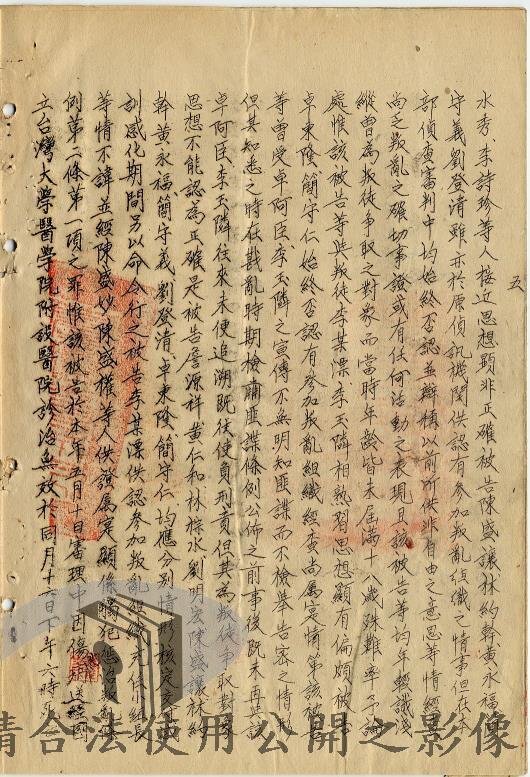 五
水秀、李詩珍等人接近思想顯非正確被告陳盛讓林約幹黃永福簡
守義劉登清雖亦於原偵訊機關供認有參加叛亂組織之情事但在本
部偵查審判中均始終否認並辯稱以前所供非自由之意思等情經
尚乏叛亂之確切事證或有任何活動之表現且該被告等均年輕識淺
縱曾為叛徒爭取之對象而當時年齡皆未屆滿十八歲殊難率予論
處惟該被告等與叛徒李某漂李玉隣相熟習思想顯有偏頗被告
卓東隆簡守仁始終否認有參加叛亂組織經查尚屬實情第該被告
等曾受卓阿臣李玉隣之宣傳不無明知匪諜而不檢舉告密之情形
但其知悉之時在戡亂時期檢肅匪諜條例公佈之前事後既未再與該
卓阿臣李玉隣往來未便追溯既往使負刑責但其為叛徒爭取對象
思想不能認為正確足被告詹源祥黃仁和林棕水劉明坛陳盛讓林約
幹黃永福簡守義劉登清卓東隆簡守仁均應分別情形核定交
訓感化期間另以命令行之被告李某漂供認參加叛亂組織充任小組長
等情不諱並經陳盛妙陳盛權等人供證屬實顯係觸犯懲治叛亂條
例第二條第一項之罪惟該被告於本年五月十日審理中因傷病送經國
立台灣大學醫學院附設醫院診治無效於同月十六日下午六時死
請合法使用公開之影像